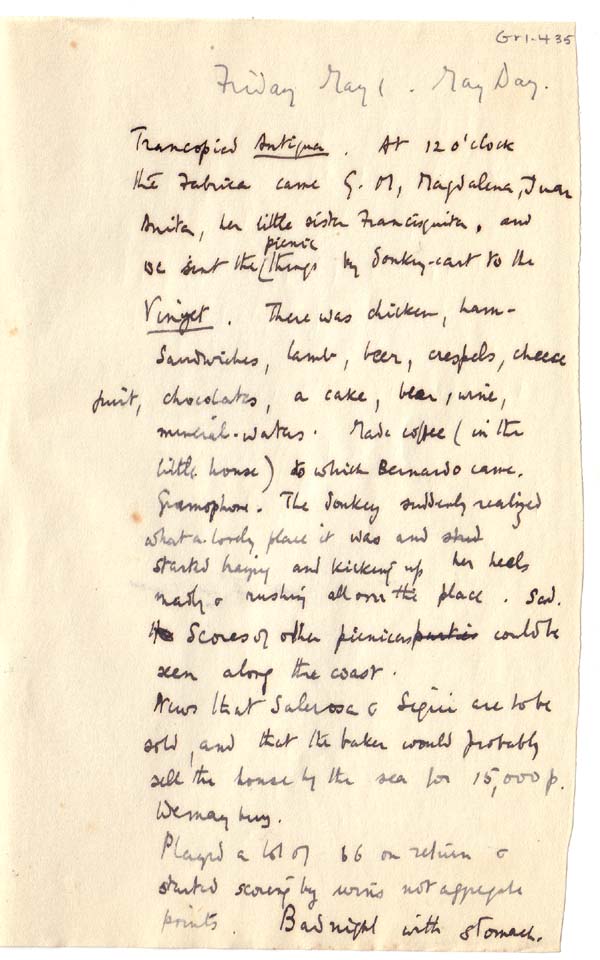 Gr1-435
Friday May 1. May Day.
Trancopied Antigua. At 12 o'clock
the Fabrica came G. M, Magdalena, Juan
Anita, her little sister Francisquita, and
picnic
we sent the things by donkey-cart to the
Vinyet. There was chicken, ham-
sandwiches, lamb, beer, crespels, cheese
fruit, chocolates, a cake, beer, wine,
mineral-waters. Made coffee (in the
little house) to which Bernardo came.
Gramophone. The donkey suddenly realized
what a lovely place it was and
started braying and kicking up her heels
madly & rushing all over the place. Sad.
Scores of other picnicers parties could be
seen along the coast.
News that Salerosa & Seguí are to be
sold, and that the baker would probably
sell the house by the sea for 15,000 p.
We may buy.
Played a lot of 66 on return &
started scoring by wins not aggregate
points. Bad night with stomach.